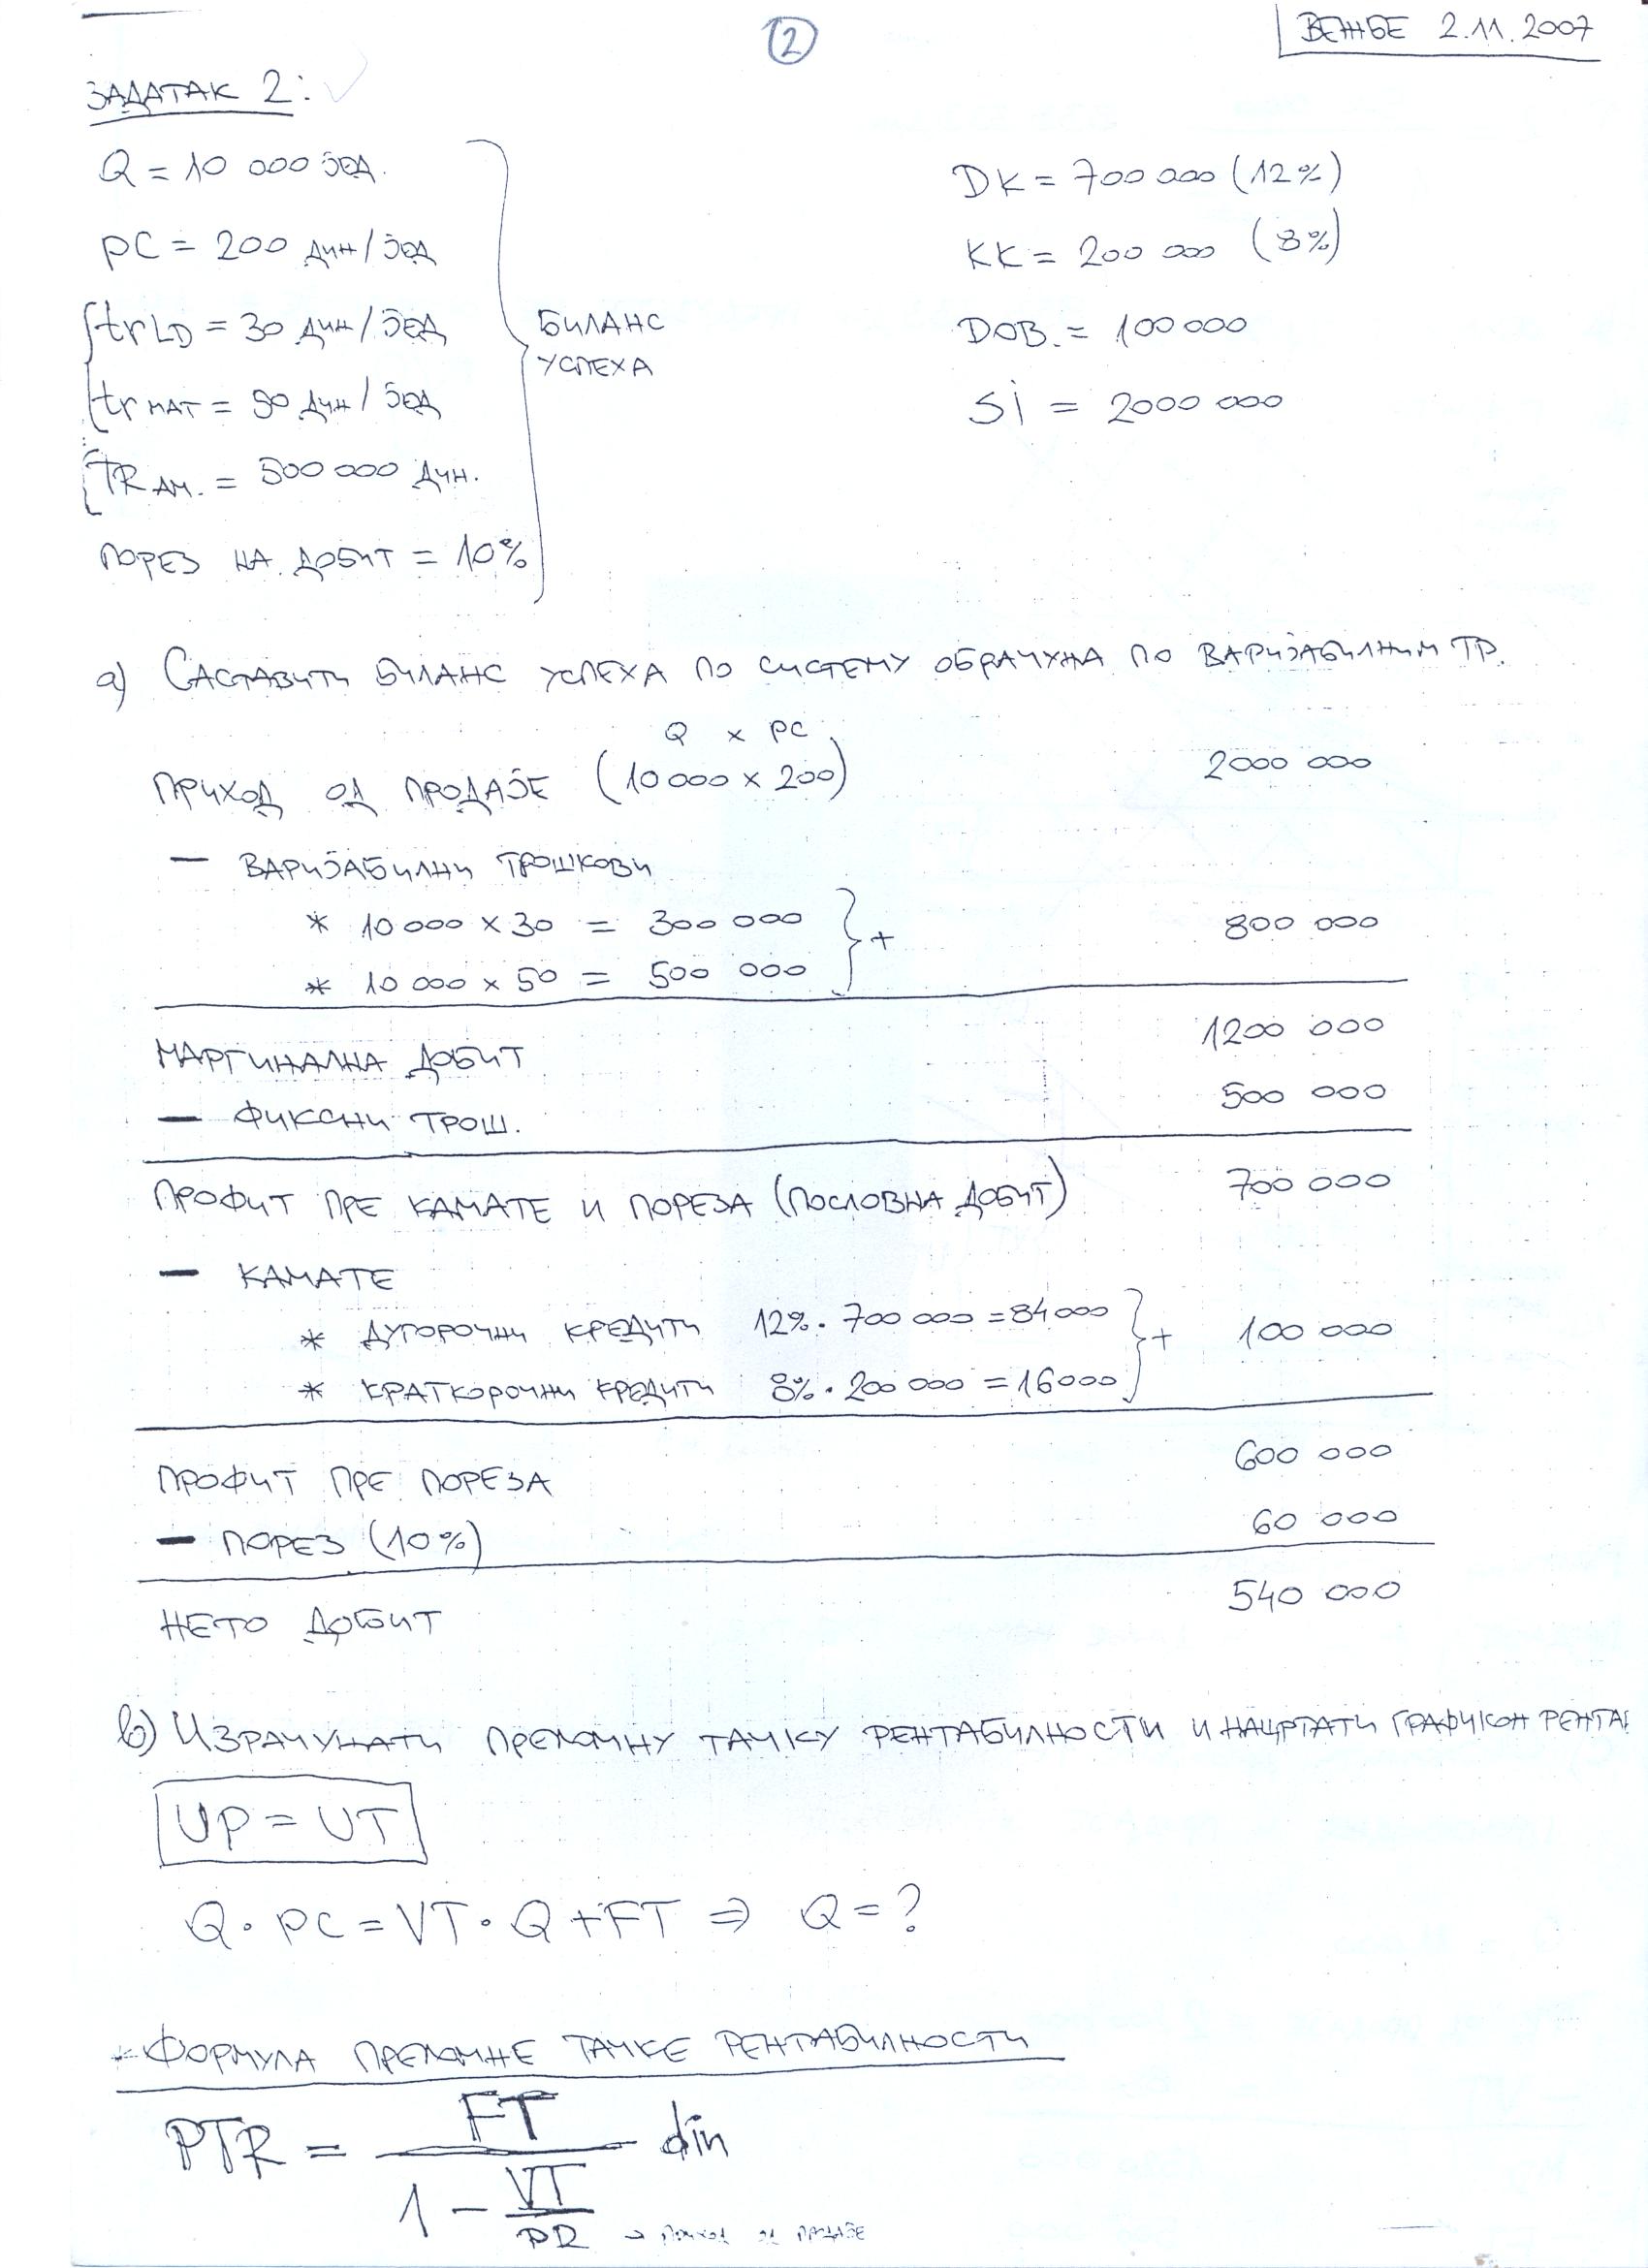 2
ВЕЖБЕ 2.11.2007
ЗАДАТАК 2:
Q = 10 000 ЈЕД.
PC = 200 ДИН/ЈЕД
trLD = 30 ДИН/ЈЕД
trМАТ = 50 ДИН/ЈЕД
TRАМ. = 500 000 ДИН.
ПОРЕЗ НА ДОБИТ = 10%
БИЛАНС
УСПЕХА
DK = 700 000 (12%)
KK = 200 000 (8%)
DOB. = 100 000
Si = 2000 000
a) САСТАВИТИ БИЛАНС УСПЕХА ПО СИСТЕМУ ОБРАЧУНА ПО ВАРИЈАБИЛНИМ ТР.
Q x PC
ПРИХОД ОД ПРОДАЈЕ (10 000 x 200) 2000 000
— ВАРИЈАБИЛНИ ТРОШКОВИ
* 10 000 x 30 = 300 000 } + 800 000
* 10 000 x 50 = 500 000
МАРГИНАЛНА ДОБИТ 1200 000
— ФИКСНИ ТРОШ. 500 000
ПРОФИТ ПРЕ КАМАТЕ И ПОРЕЗА (ПОСЛОВНА ДОБИТ) 700 000
— КАМАТЕ
* ДУГОРОЧНИ КРЕДИТИ 12% · 700 000 = 84 000 } + 100 000
* КРАТКОРОЧНИ КРЕДИТИ 8% · 200 000 = 16 000
ПРОФИТ ПРЕ ПОРЕЗА 600 000
— ПОРЕЗ (10%) 60 000
НЕТО ДОБИТ 540 000
b) ИЗРАЧУНАТИ ПРЕЛОМНУ ТАЧКУ РЕНТАБИЛНОСТИ И НАЦРТАТИ ГРАФИКОН РЕНТА
UP = UT
Q · PC = VT · Q + FT ⇒ Q = ?
* ФОРМУЛА ПРЕЛОМНЕ ТАЧКЕ РЕНТАБИЛНОСТИ
PTR = FT / (1 - VT / PR) din
→ ПРИХОД ОД ПРОДАЈЕ